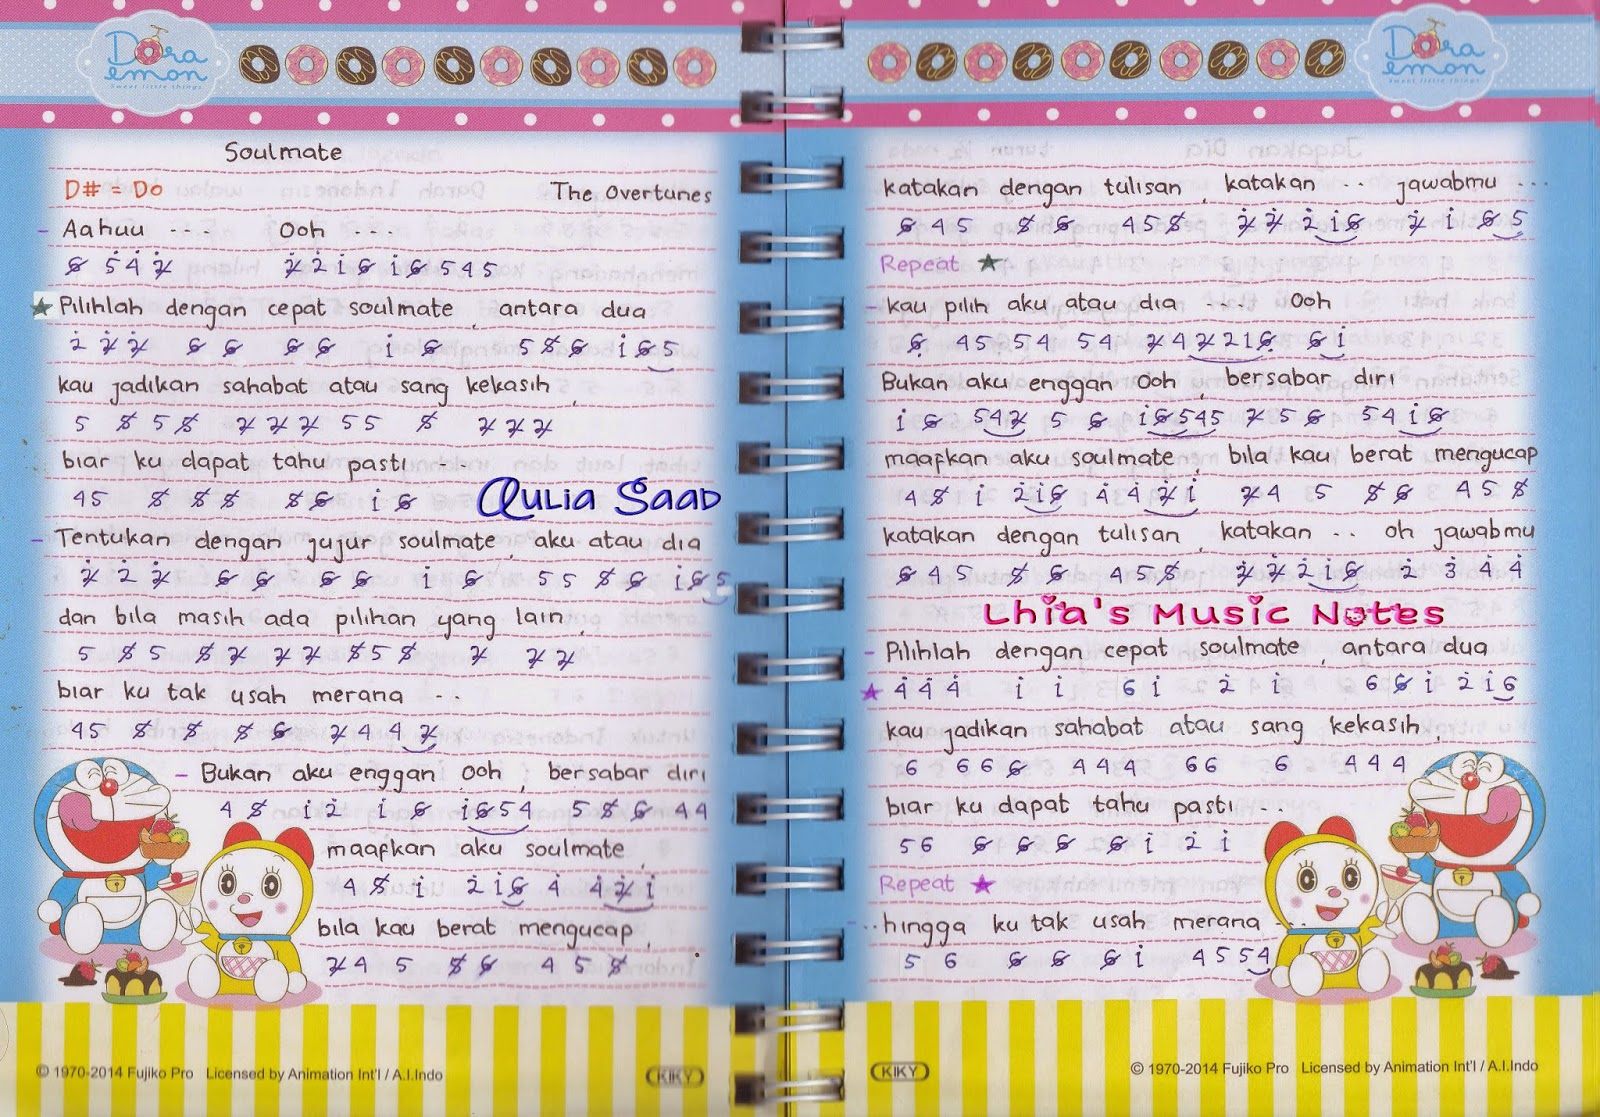 Dora
emon
Sweet little things
Dora
emon
Sweet little things
Soulmate
D# = Do
The Overtunes
- Aahuu ---- Ooh ---
6̸ 5̇ 4̇ 2̸̇ 2̸̇ 2̇ 1̇ 6̸ 1̇ 6̸ 5 4 5
★ Pilihlah dengan cepat soulmate, antara dua
2̇ 2̸̇ 2̸̇ 6̸ 6̸ 6̸ 6̸ 1̇ 6̸ 5 5̸ 6̸ 1̇ 6̸ 5
kau jadikan sahabat atau sang kekasih,
5 5̸ 5 5̸ 2̸ 2̸ 2̸ 5 5 5̸ 2̸ 2̸ 2̸
biar ku dapat tahu pasti -
4 5 5̸ 5̸ 5̸ 5̸ 6̸ 1̇ 6̸
Qulia Saad
- Tentukan dengan jujur soulmate, aku atau dia
2̸̇ 2̇ 2̸̇ 6̸ 6̸ 6̸ 6̸ 1̇ 6̸ 5 5 5̸ 6̸ 1̇ 6̸ 5
dan bila masih ada pilihan yang lain,
5 5̸ 5 5̸ 2̸ 2̸ 2̸ 5̸ 5 5̸ 2̸ 2̸ 2̸
biar ku tak usah merana --
4 5 5̸ 5̸ 5̸ 6̸ 2̸ 4 4 2̸
- Bukan aku enggan ooh, bersabar diri
4 5̸ 1̇ 2̇ 1̇ 6̸ 1̇ 6̸ 5 4 5 5̸ 6̸ 4 4
maafkan aku soulmate,
4 5̸ 1̇ 2̇ 1̇ 6̸ 4̇ 4̇ 2̸̇ 1̇
bila kau berat mengucap,
2̸ 4 5 5̸ 6̸ 4 5 5̸
© 1970-2014 Fujiko Pro Licensed by Animation Int'l / A.I.Indo
KIKY
katakan dengan tulisan, katakan -- jawabmu ---
6̸ 4 5 5̸ 6̸ 4 5 5̸ 2̸̇ 2̸̇ 2̇ 1̇ 6̸ 2̸̇ 1̇ 6̸ 5
Repeat ★
- kau pilih aku atau dia --- Ooh
6̸ 4 5 5 4 5 4 2̸ 4 2̸ 2 1 6̸ 6̸ 1̇
Bukan aku enggan ooh, bersabar diri
1̇ 6̸ 5 4 2̸ 5 6̸ 1̇ 6̸ 5 4 5 2̸ 5 6̸ 5 4 1̇ 6̸
maafkan aku soulmate, bila kau berat mengucap
4 5̸ 1̇ 2̇ 1̇ 6̸ 4̇ 4̇ 2̸̇ 1̇ 2̸ 4 5 5̸ 6̸ 4 5 5̸
katakan dengan tulisan, katakan -- oh jawabmu
6̸ 4 5 5̸ 6̸ 4 5 5̸ 2̸̇ 2̸̇ 2̇ 1̇ 6̸ 2̇ 3̇ 4̇ 4̇
Lhia's Music Notes
- Pilihlah dengan cepat soulmate, antara dua
★ 4̇ 4̇ 4̇ 1̇ 1̇ 6 1̇ 2̇ 1̇ 6 6̸ 1̇ 2̇ 1̇ 6
kau jadikan sahabat atau sang kekasih,
6 6 6 6̸ 4 4 4 6 6 6 4 4 4
biar ku dapat tahu pasti --
5 6 6̸ 6̸ 6̸ 6̸ 1̇ 2̇ 1̇
Repeat ★
- --hingga ku tak usah merana ---
5 6 6̸ 6̸ 6̸ 1̇ 4 5 5 4
KIKY
© 1970-2014 Fujiko Pro Licensed by Animation Int'l / A.I.Indo